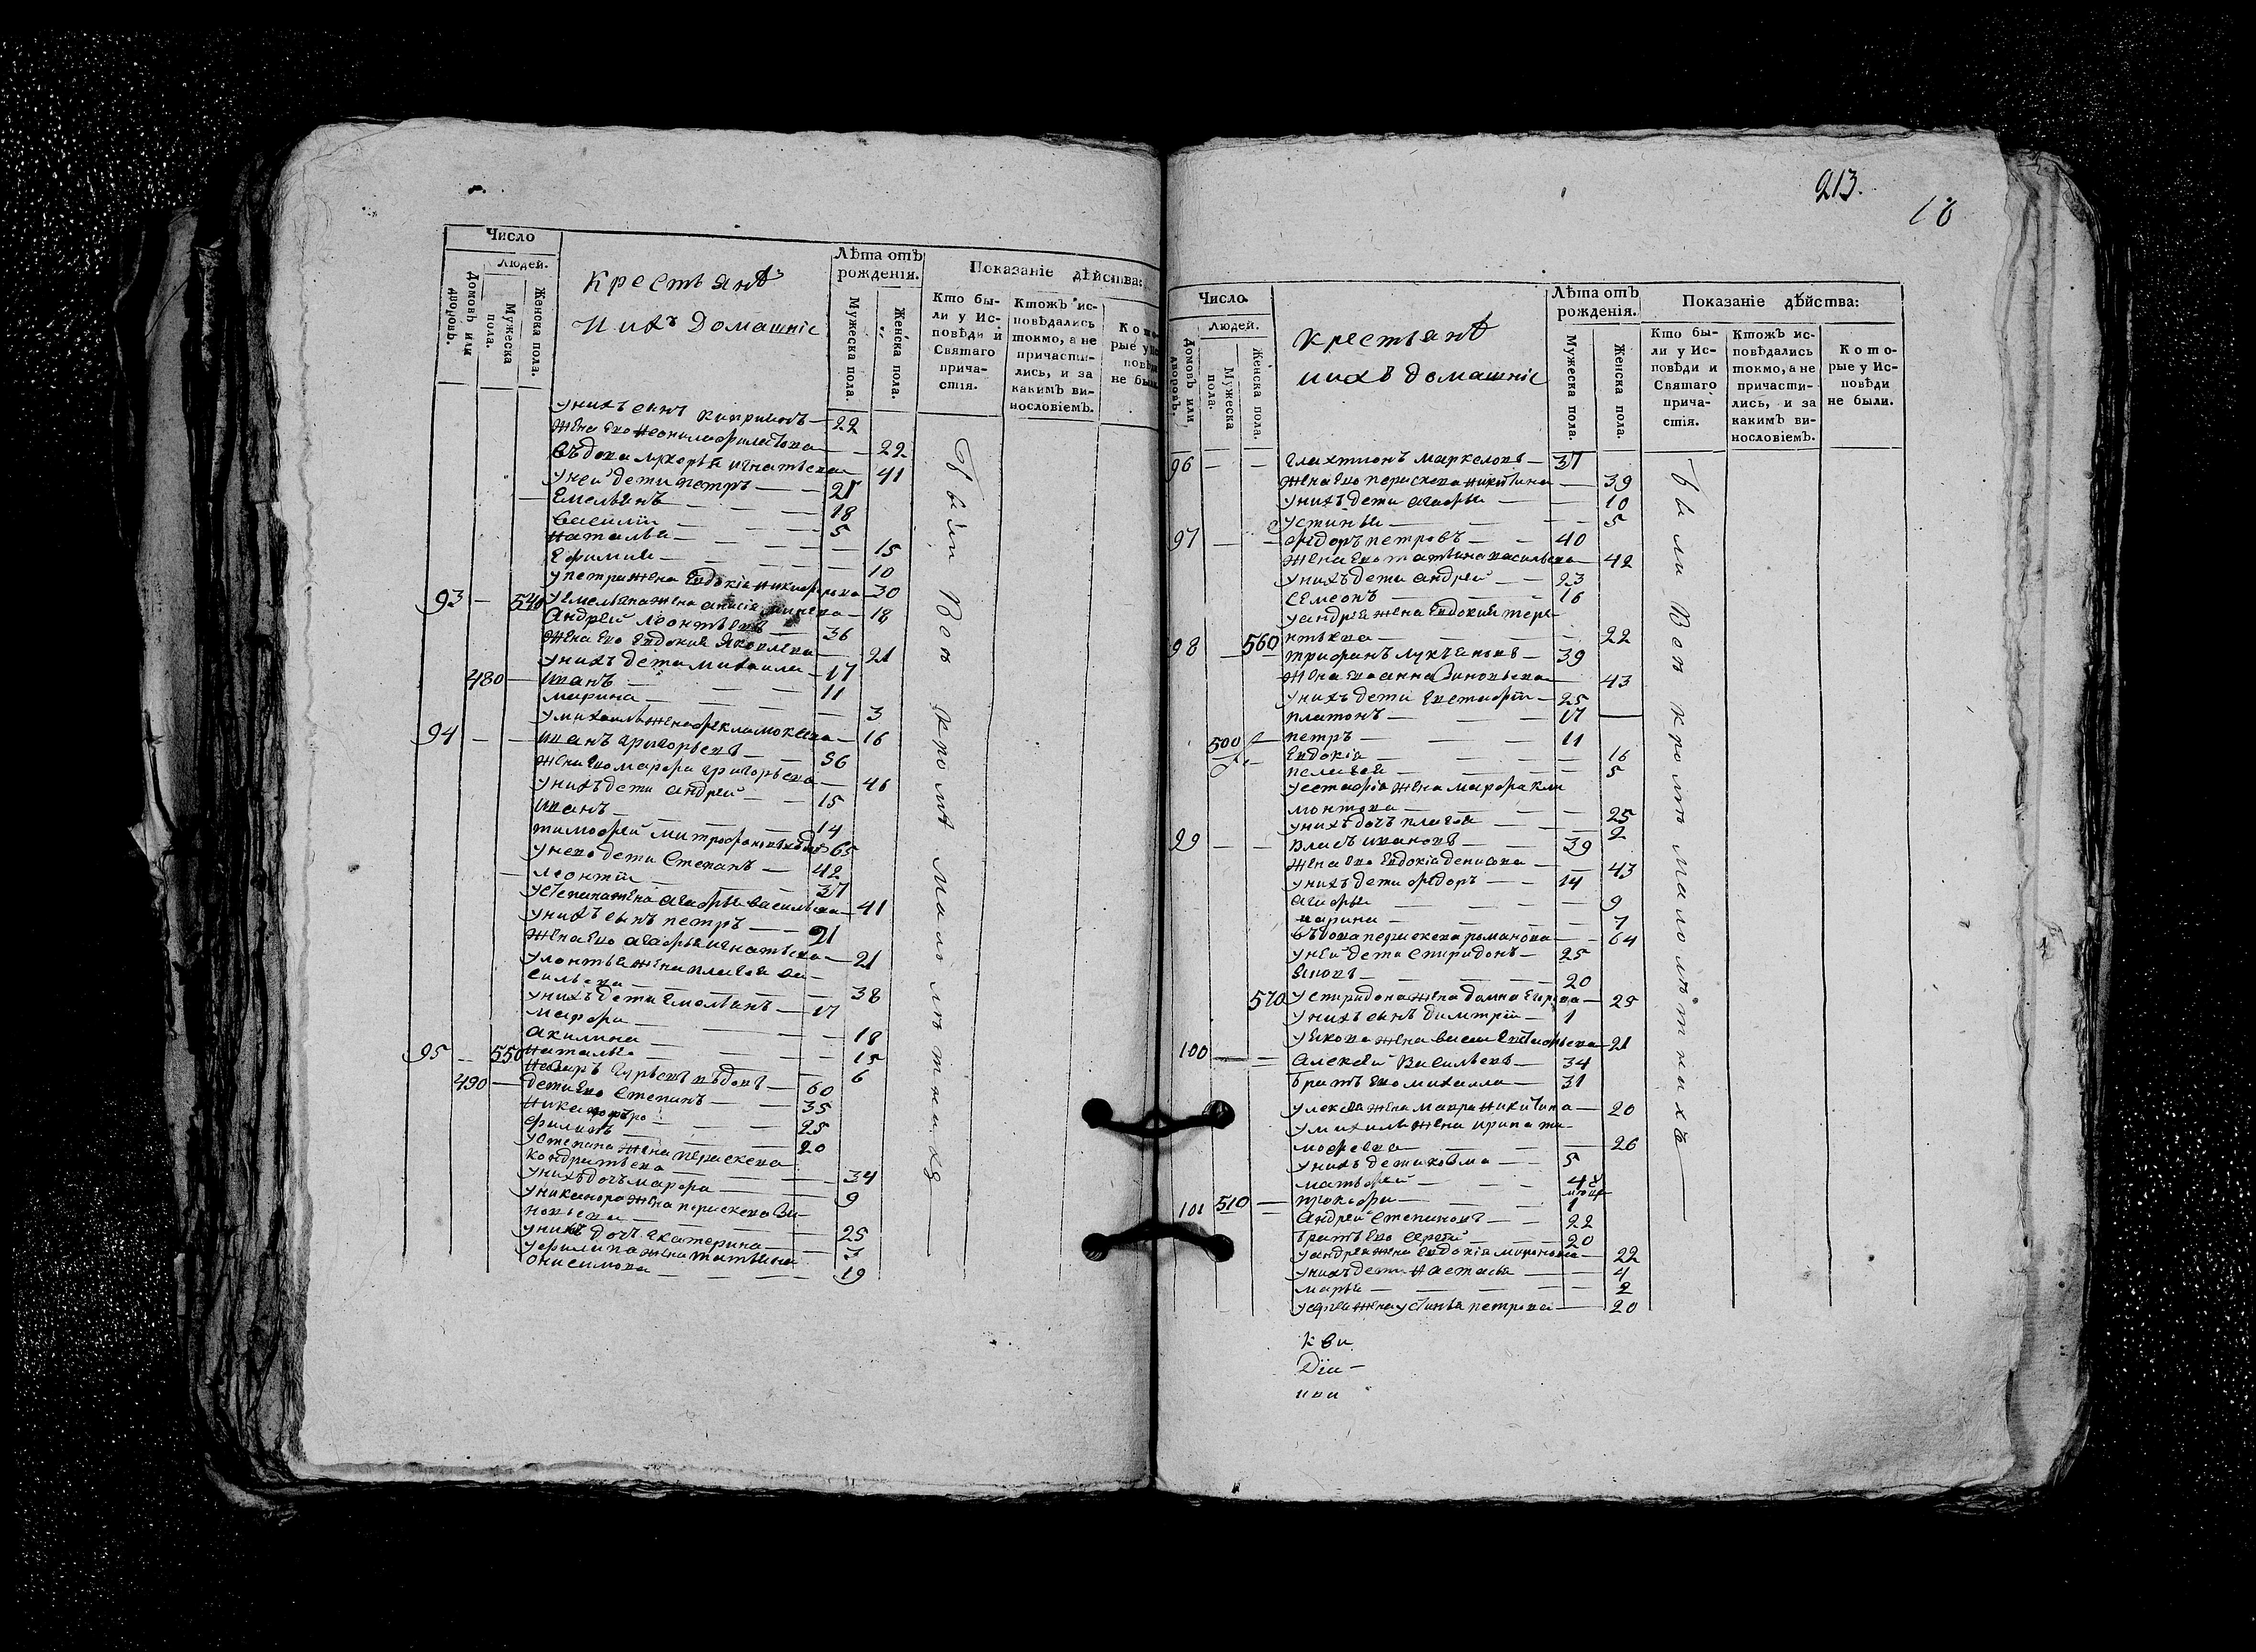 Число
Людей.
Домовъ или дворовъ.
Мужеска пола.
Женска пола.
Крестьянѣ
И ихъ домашніе
Лѣта отъ рожденія.
Мужеска пола.
Женска пола.
Показаніе дѣйства:
Кто бы-
ли у Ис-
повѣди и
Святаго
прича-
стія.
Ктожъ ис-
повѣдались
токмо, а не
причасти-
лись, и за
какимъ ви-
нословіемъ.
Кото-
рые у Ис-
повѣди
не были.
унихъ сынъ киприянъ — 22
жена ево неонила филатова — 22
въдова лукерья игнатьева — 41
уней дети петръ — 21
Емельянъ — 18
василіи — 5
наталья — 15
Ефимия — 10
упетра жена Евдокія никифорова — 30
540 уемельяна жена анисія — 18
93 — Андрей леонтьевъ — 36
жена ево Евдокия Яковлева — 21
унихъ дети михаила — 17
480 — иванъ — 11
марина — 3
умихаила жена фекла мокеева — 16
94 — иванъ григорьевъ — 36
жена ево марфа григорьева — 46
унихъ дети андрей — 15
иванъ — 14
тимофей митрофановъ — 65
унево дети Степанъ — 42
леонтіи — 37
устепана жена агафья васильева — 41
унихъ сынъ петръ — 21
жена ево агафья игнатьева — 21
улеонтья жена пелагея ва-
сильева — 38
унихъ дети Емельянъ — 17
марфа — 18
акилина — 15
550 наталья — 6
95 — гурьевъ въдовъ — 60
490 — дети ево Степанъ — 35
никаноръ — 25
филипъ — 20
устепана жена перасковa
кондратьева — 34
унихъ дочъ марфа — 9
униканора жена перасковa зи-
новьева — 25
унихъ дочъ Екатерина — 3
уфилипа жена татьяна
онисимова — 19
были вси кромѣ малолѣтнихъ
213.
10
Число.
Людей.
Домовъ или дворовъ.
Мужеска пола.
Женска пола.
крестьянѣ
иихъ домашніе
Лѣта отъ рожденія.
Мужеска пола.
Женска пола.
Показаніе дѣйства:
Кто бы-
ли у Ис-
повѣди и
Святаго
прича-
стія.
Ктожъ ис-
повѣдались
токмо, а не
причасти-
лись, и за
какимъ ви-
нословіемъ.
Кото-
рые у Ис-
повѣди
не были.
96 — — Галахтионъ маркеловъ — 37
жена ево пераскева никитина — 39
унихъ дети агафья — 10
устинья — 5
97 — — федоръ петровъ — 40
жена ево татьяна васильева — 42
унихъ дети андрей — 23
семеонъ — 16
уандрея жена Евдокия тере-
560 нтьева — 22
98 — трифанъ лукьяновъ — 39
жена ево анна зиновьева — 43
унихъ дети Евстафіи — 25
платонъ — 17
500 — петръ — 11
Евдокіа — 16
пелагея — 5
уестафіа жена марфа кли
монтова — 25
унихъ дочъ пелагея — 2
99 — — власъ ивановъ — 39
жена ево Евдокіа денисова — 43
унихъ дети федоръ — 14
агафья — 9
марина — 7
въдова пераскева романова — 64
уней дети спиридонъ — 25
Яковъ — 20
570 успиридона жена домна — 25
унихъ сынъ димитріи — 1
уякова жена васса — 21
100 — — алексей васильевъ — 34
братъ ево михаила — 31
улексея жена мавра никитина — 20
умихаила жена ирина ти-
мофеева — 26
унихъ дети козма — 5
матьфей — 4
510 — прокофи — 1
101 Андрей степановъ — 22
братъ ево сергей — 20
уандрея жена Евдокія миронова — 22
унихъ дети настасья — 4
марья — 2
усергея жена устинья петрова — 20
были вси кромѣ малолѣтнихъ